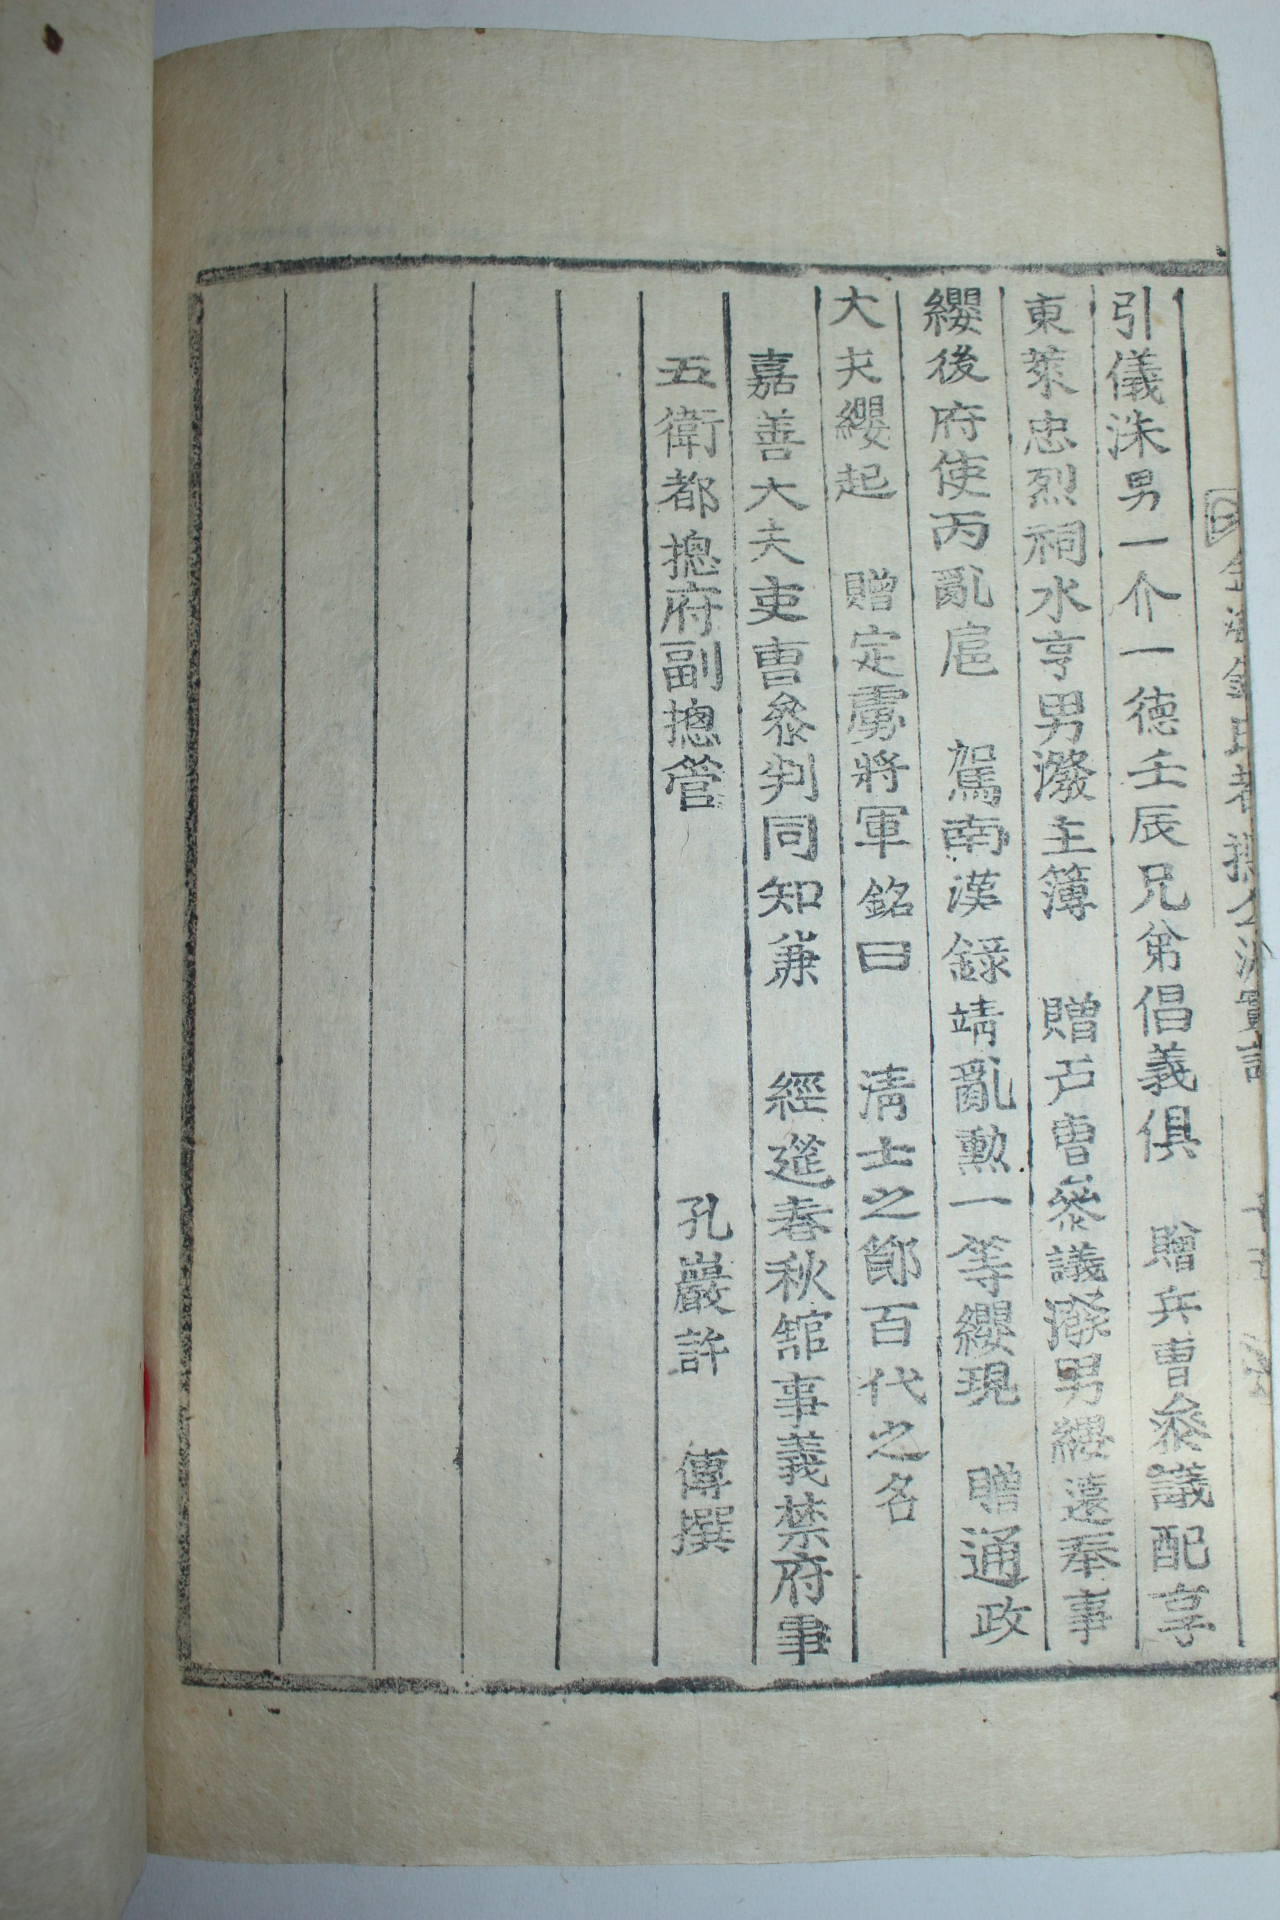 引儀洙男一介一德壬辰兄弟倡義俱 贈兵曹叅議配享
東萊忠烈祠水亨男潑主簿 贈戶曹叅議潑男纓遠奉事
纓後府使丙亂扈 駕南漢錄靖亂勲一等纓現 贈通政
大夫纓起 贈定虜將軍銘曰 淸士之節百代之名
嘉善大夫吏曹叅判同知兼 經筵春秋舘事義禁府事
五衛都摠府副摠管 孔巖許 傳撰